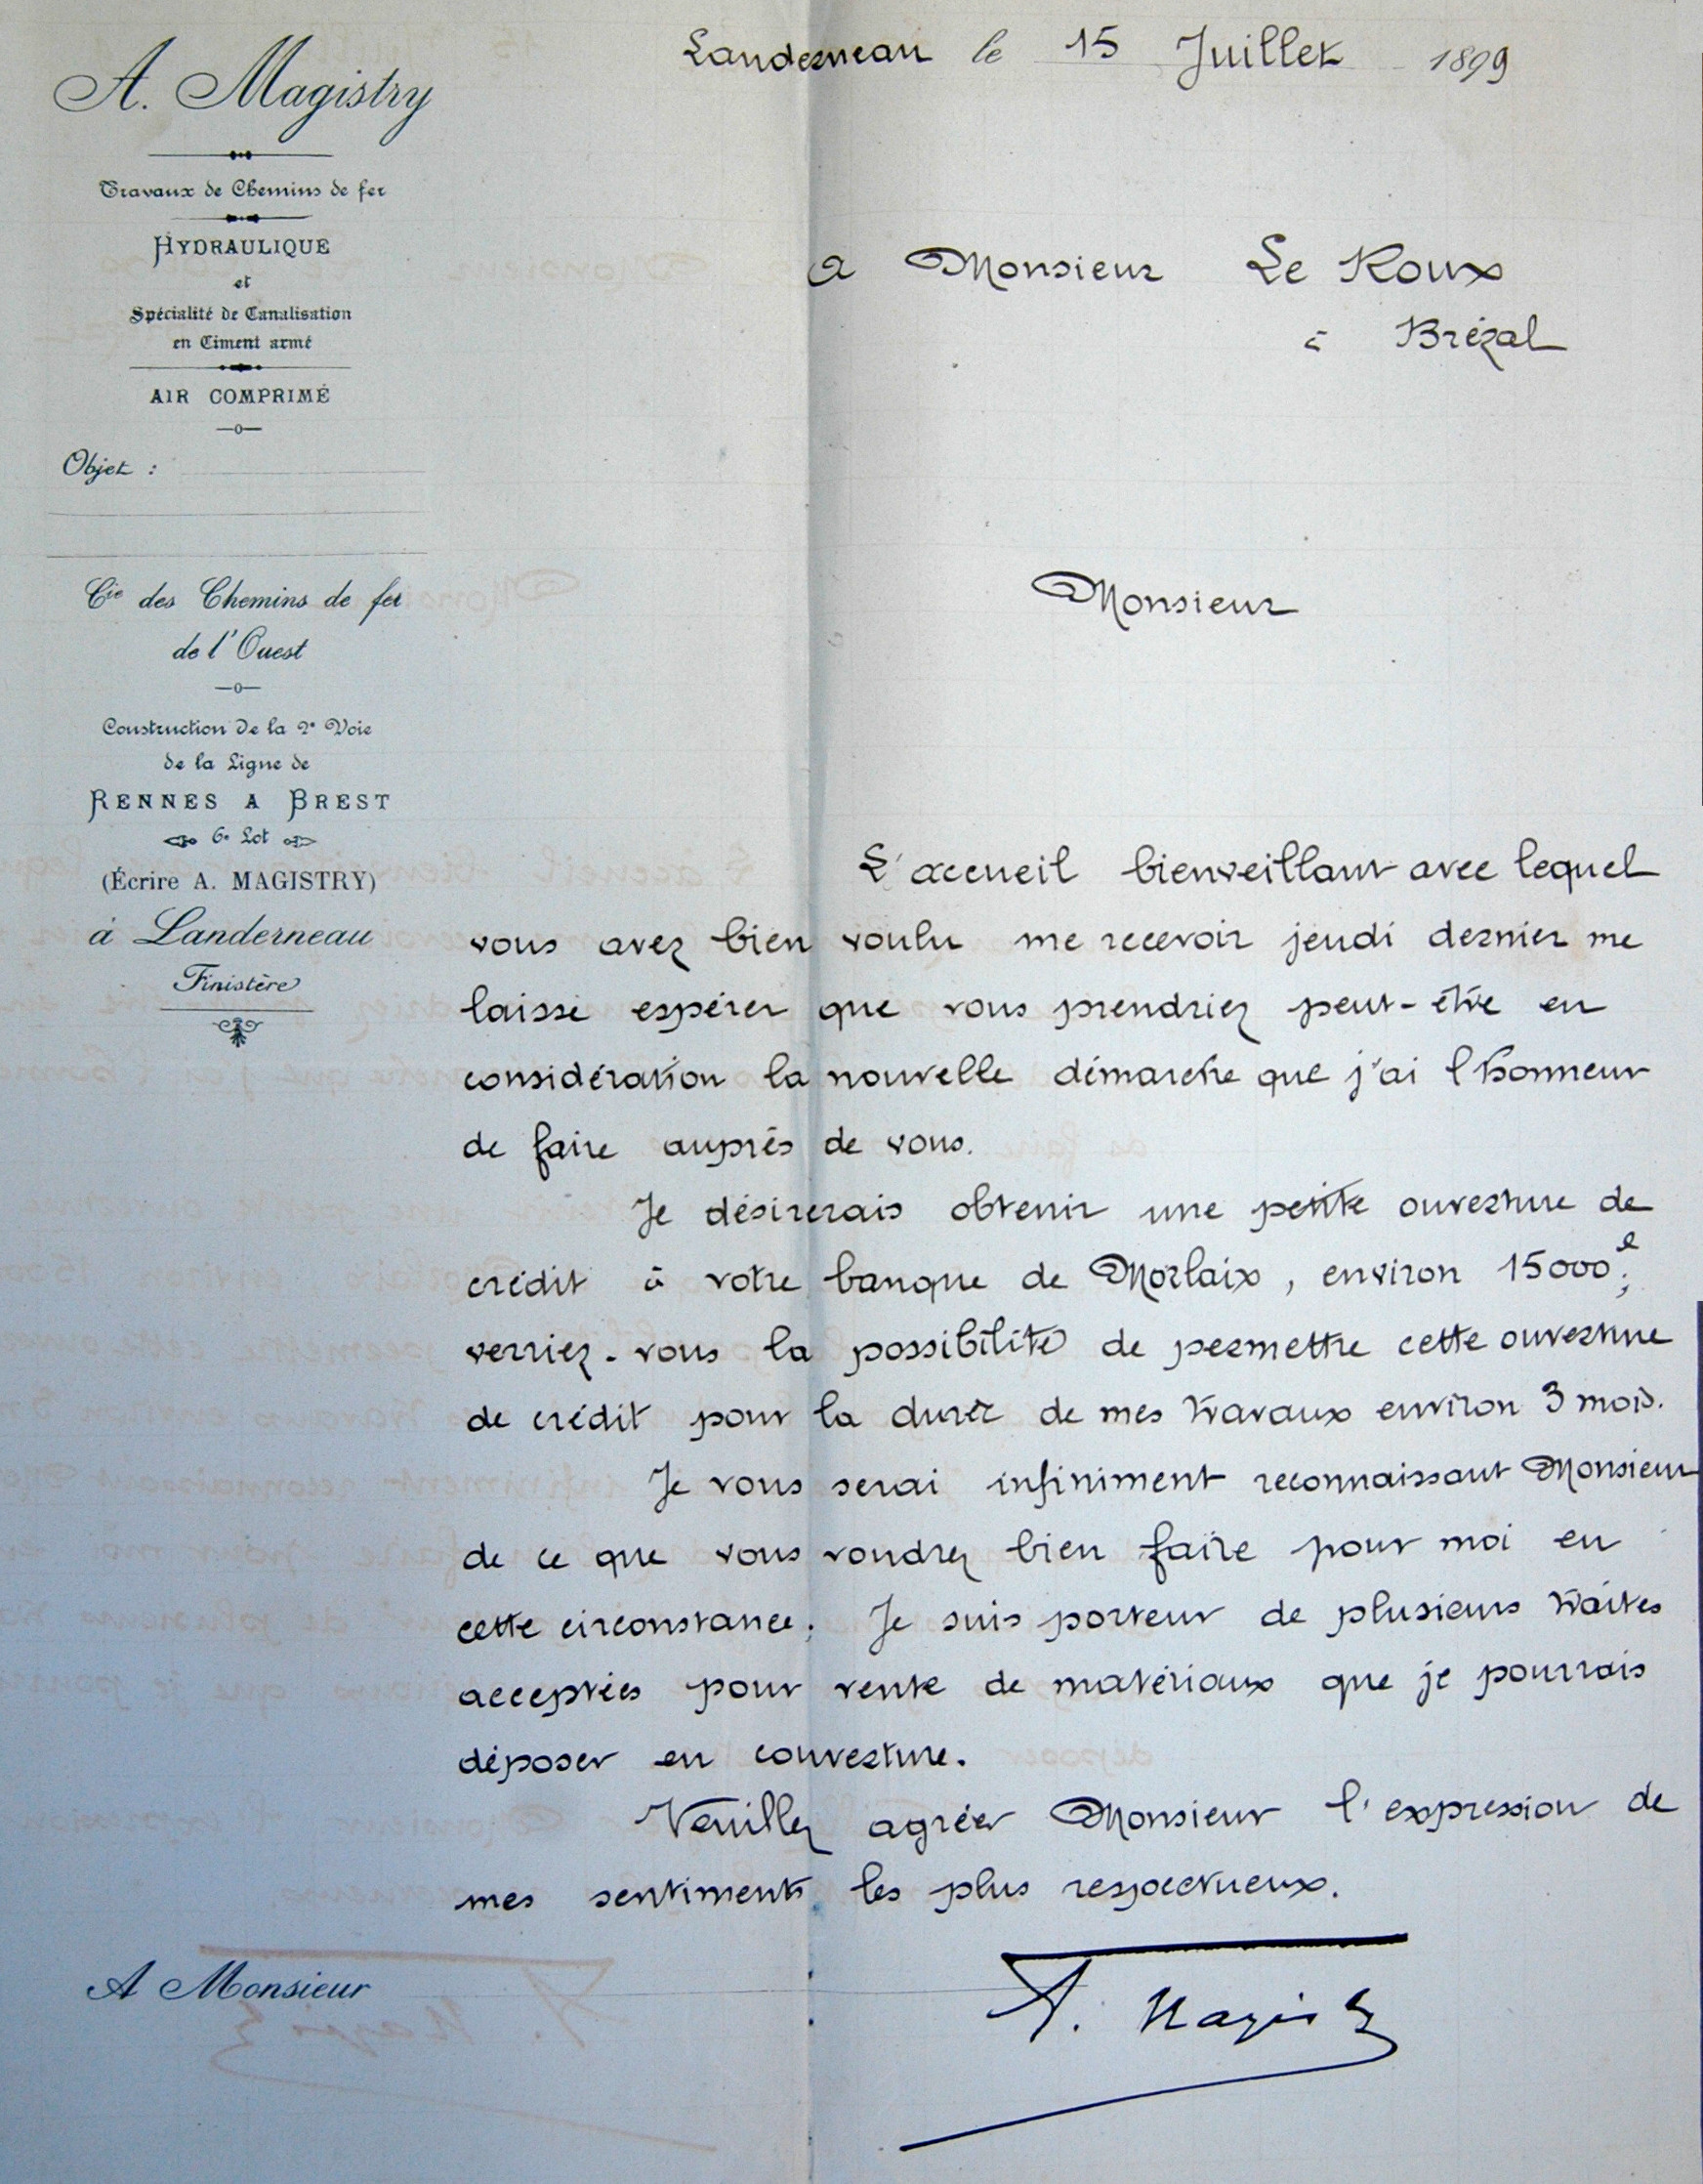 A. Magistry
Travaux de Chemins de fer
HYDRAULIQUE
et
Spécialité de Canalisation
en Ciment armé
AIR COMPRIMÉ
Objet :
Cie des Chemins de fer
de l'Ouest
Construction de la 2e Voie
de la Ligne de
RENNES A BREST
6e Lot
(Écrire A. MAGISTRY)
à Landerneau
Finistère
Landerneau le 15 Juillet 1899
A Monsieur Le Roux
à Brézal
Monsieur
L'accueil bienveillant avec lequel
vous avez bien voulu me recevoir jeudi dernier me
laisse espérer que vous prendriez peut-être en
considération la nouvelle démarche que j'ai l'honneur
de faire auprès de vous.
Je désirerais obtenir une petite ouverture de
crédit à votre banque de Morlaix, environ 15000 ;
verriez-vous la possibilité de permettre cette ouverture
de crédit pour la durée de mes travaux environ 3 mois.
Je vous serai infiniment reconnaissant Monsieur
de ce que vous voudrez bien faire pour moi en
cette circonstance. Je suis porteur de plusieurs traites
acceptées pour vente de matériaux que je pourrais
déposer en couverture.
Veuillez agréer Monsieur l'expression de
mes sentiments les plus respectueux.
A Monsieur
A. Magistry